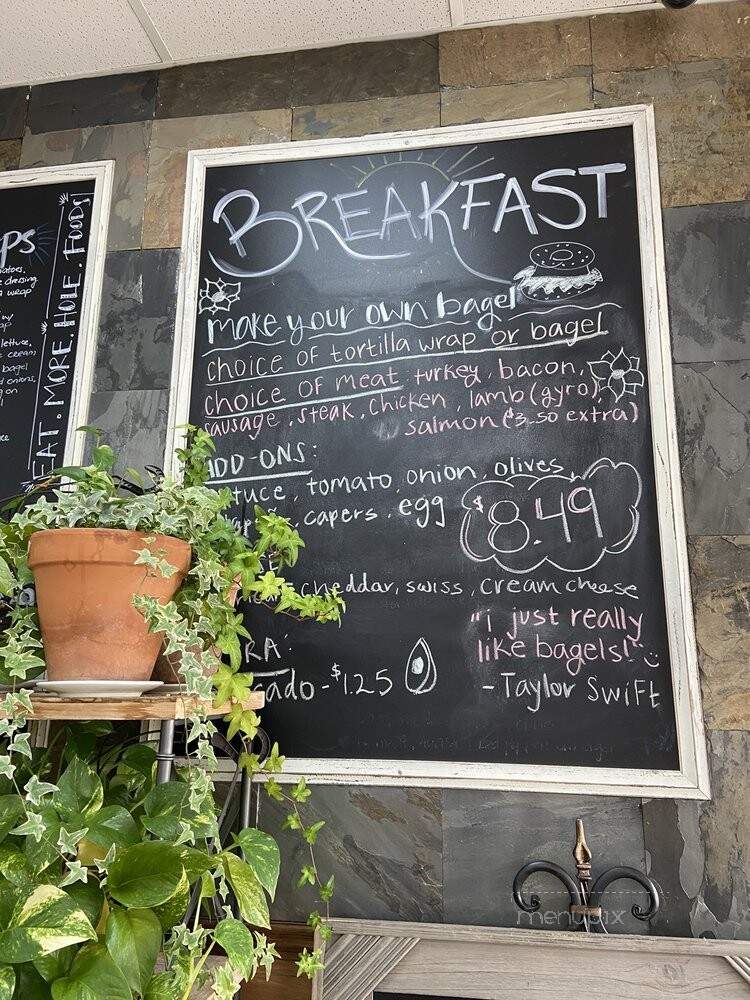 BREAKFAST
make your own bagel
choice of tortilla wrap or bagel
choice of meat turkey, bacon,
sausage, steak, chicken, lamb (gyro),
salmon ($3.50 extra)
ADD-ONS:
tuce, tomato, onion, olives,
capers, egg
$8.49
cheddar, swiss, cream cheese
"i just really
like bagels!"
-Taylor Swift
RA:
cado - $1.25
EAT. MORE. HOLE. FOODS!
ps
dressing
wrap
lettuce,
cream
bagel
onions,
on
menupix